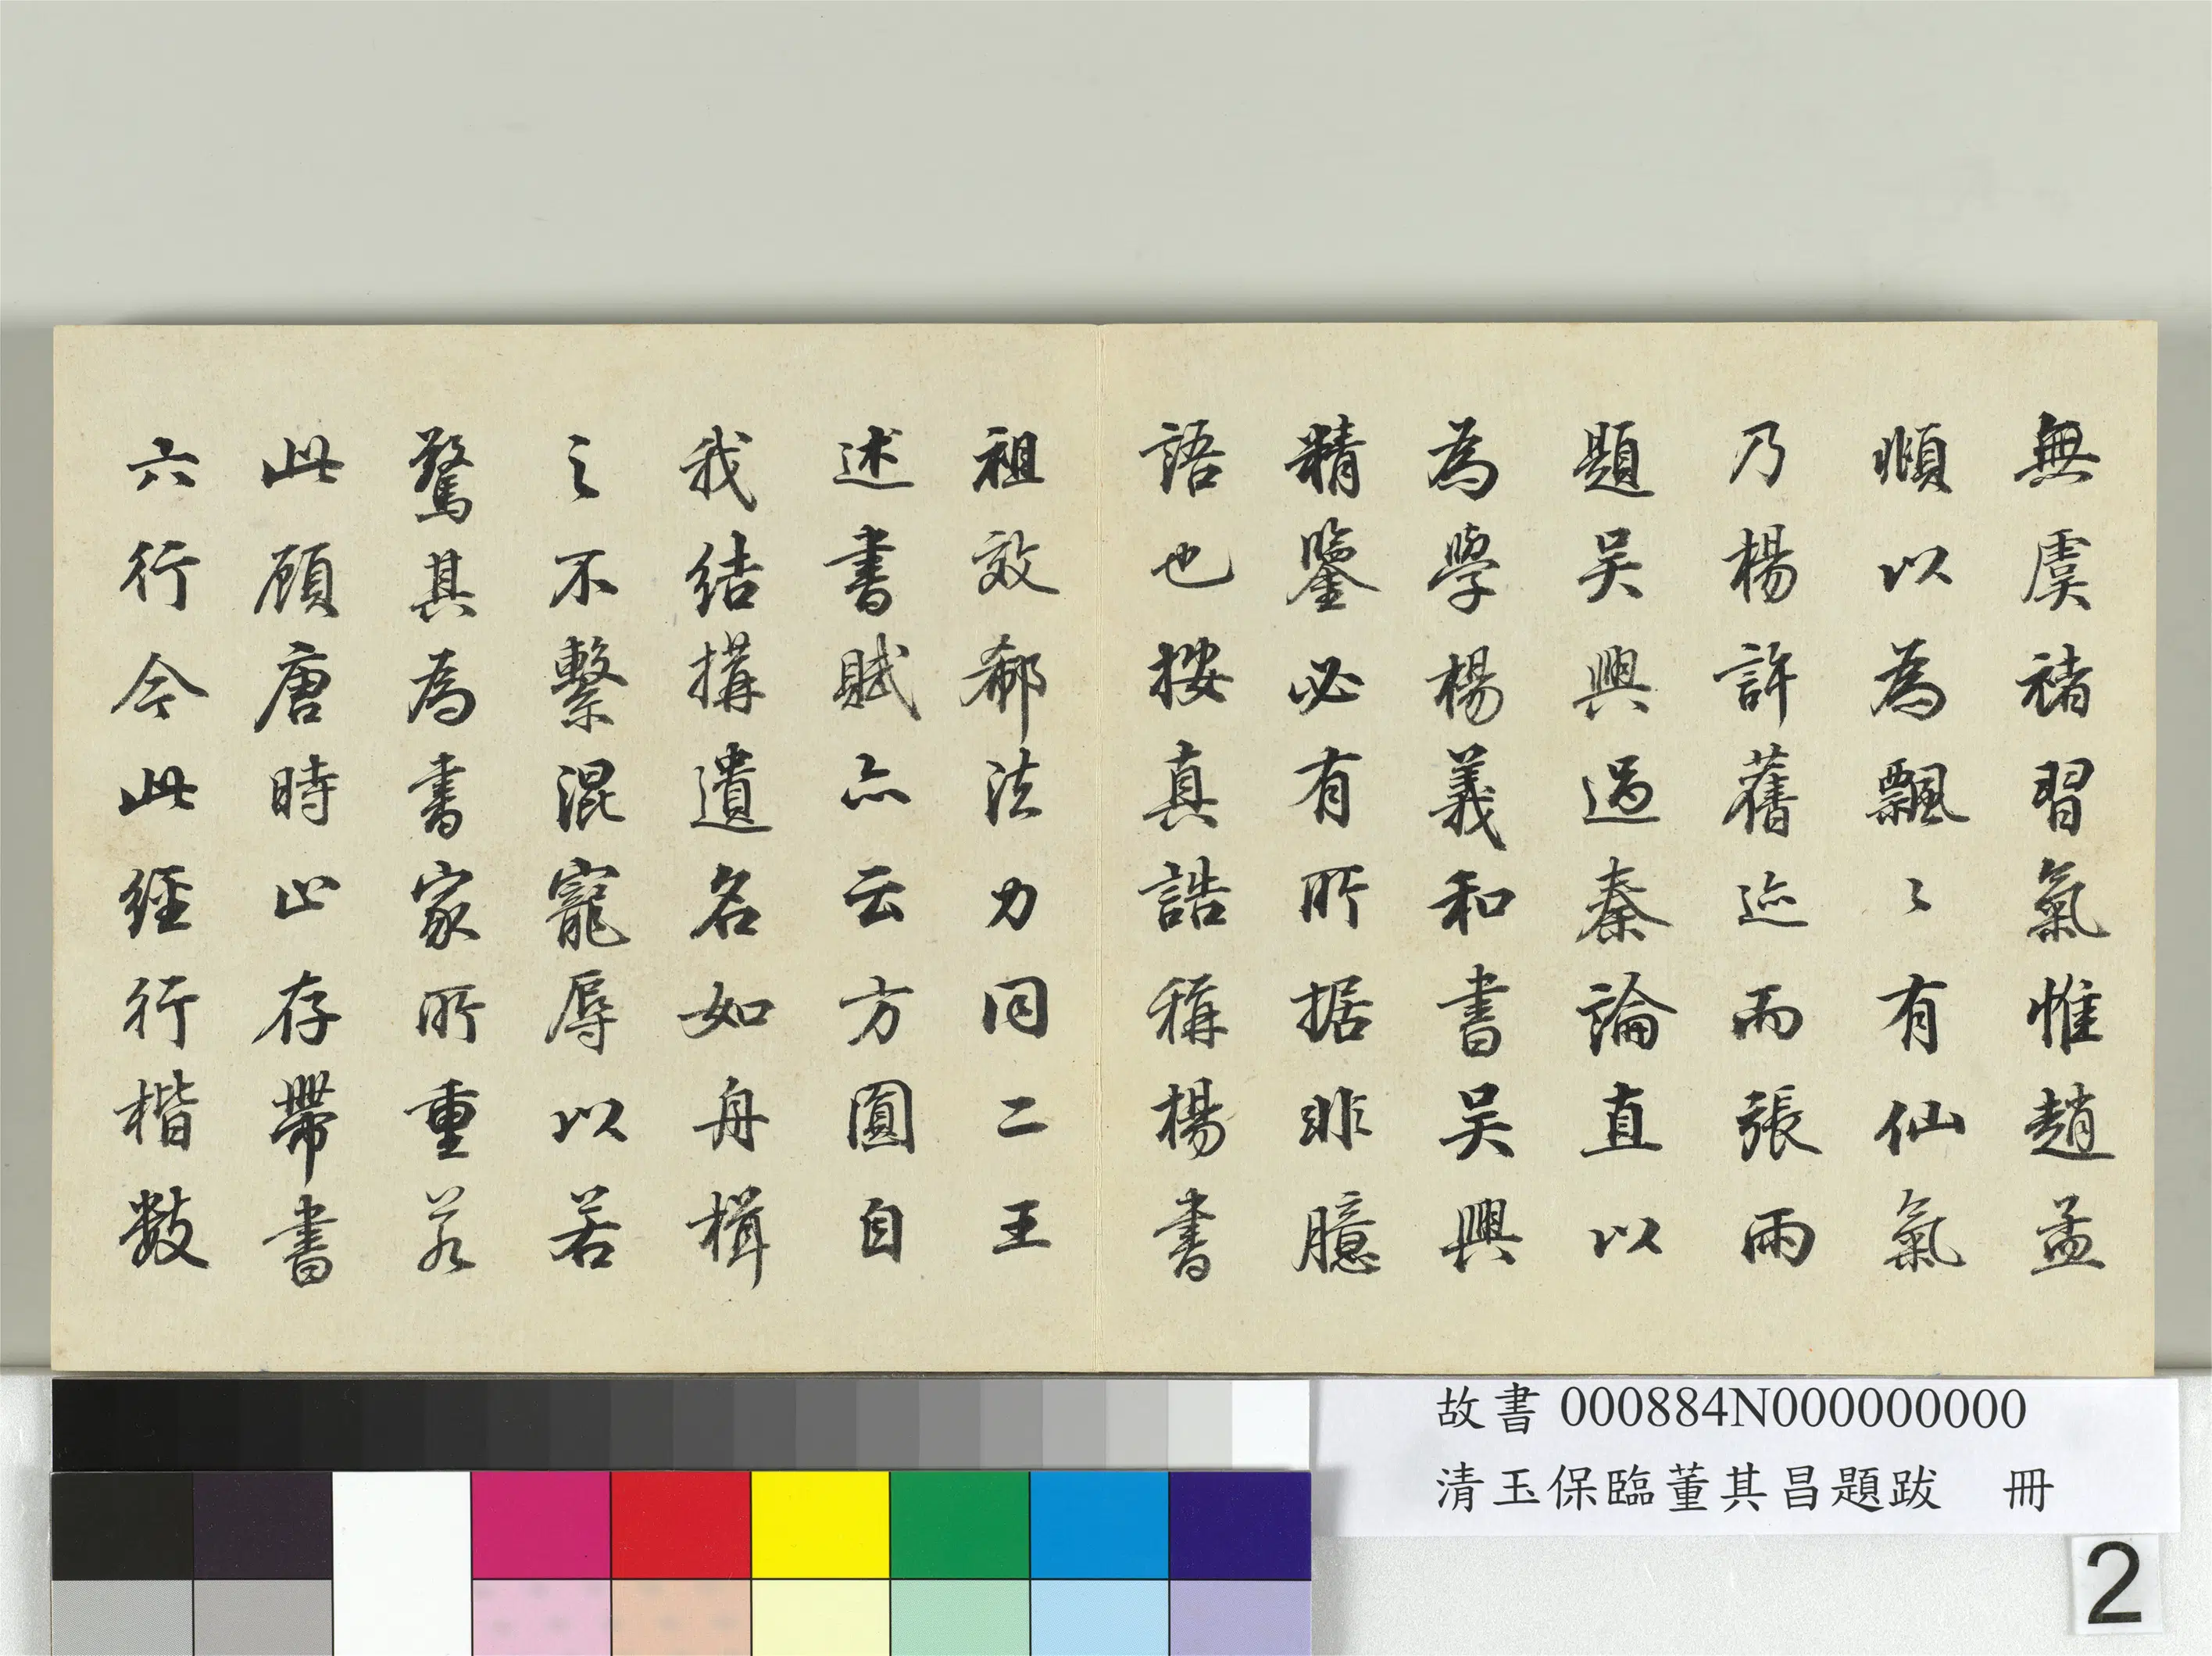 無虞褚習氣惟趙孟
順以為飄〻有仙氣
乃楊許舊迹而張雨
題吴興過秦論直以
為學楊義和書吴興
精鑒必有所据非臆
語也按真誥稱楊書
祖效郗法力同二王
述書賦亦云方圓自
我結搆遺名如舟楫
之不繫混寵辱以若
驚其為書家所重若
此顧唐時止存帶書
六行今此經行楷數
故書 000884N000000000
清玉保臨董其昌題跋 冊
2